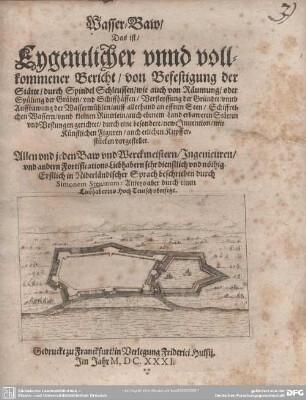 Wasser/Baw/
Das ist/
Eygentlicher vnnd voll-
kommener Bericht/ von Befestigung der
Stätte/ durch Spindel Schleussen/ wie auch von Räumung/ oder
Spülung der Gräben/ vnd Schiffhäffen/
Wassermühlen/
Wassern/ vnnd kleinen
vnd Vestungen gerichtet/ durch eine besondere/ newe Invention/ mit
Künstlichen Figuren/ auch etlichen Kupffer-
stücken vorgestellet.
Allen vnd jeden Baw vnd Werckmeistern/ Ingenieuren/
vnd andern Fortifications Liebhabern sehr dienstlich vnd nöthig
Erstlich in Niderländischer Sprach beschrieben durch
Simonem Stevinum: Anjetzo aber durch einen
Liebhaber ins Hoch Teutsch vbersetzt.
Gedruckt zu Franckfurt/ in Verlegung Friderici Hulsij,
Im Jahr M. DC. XXXI.
DFG